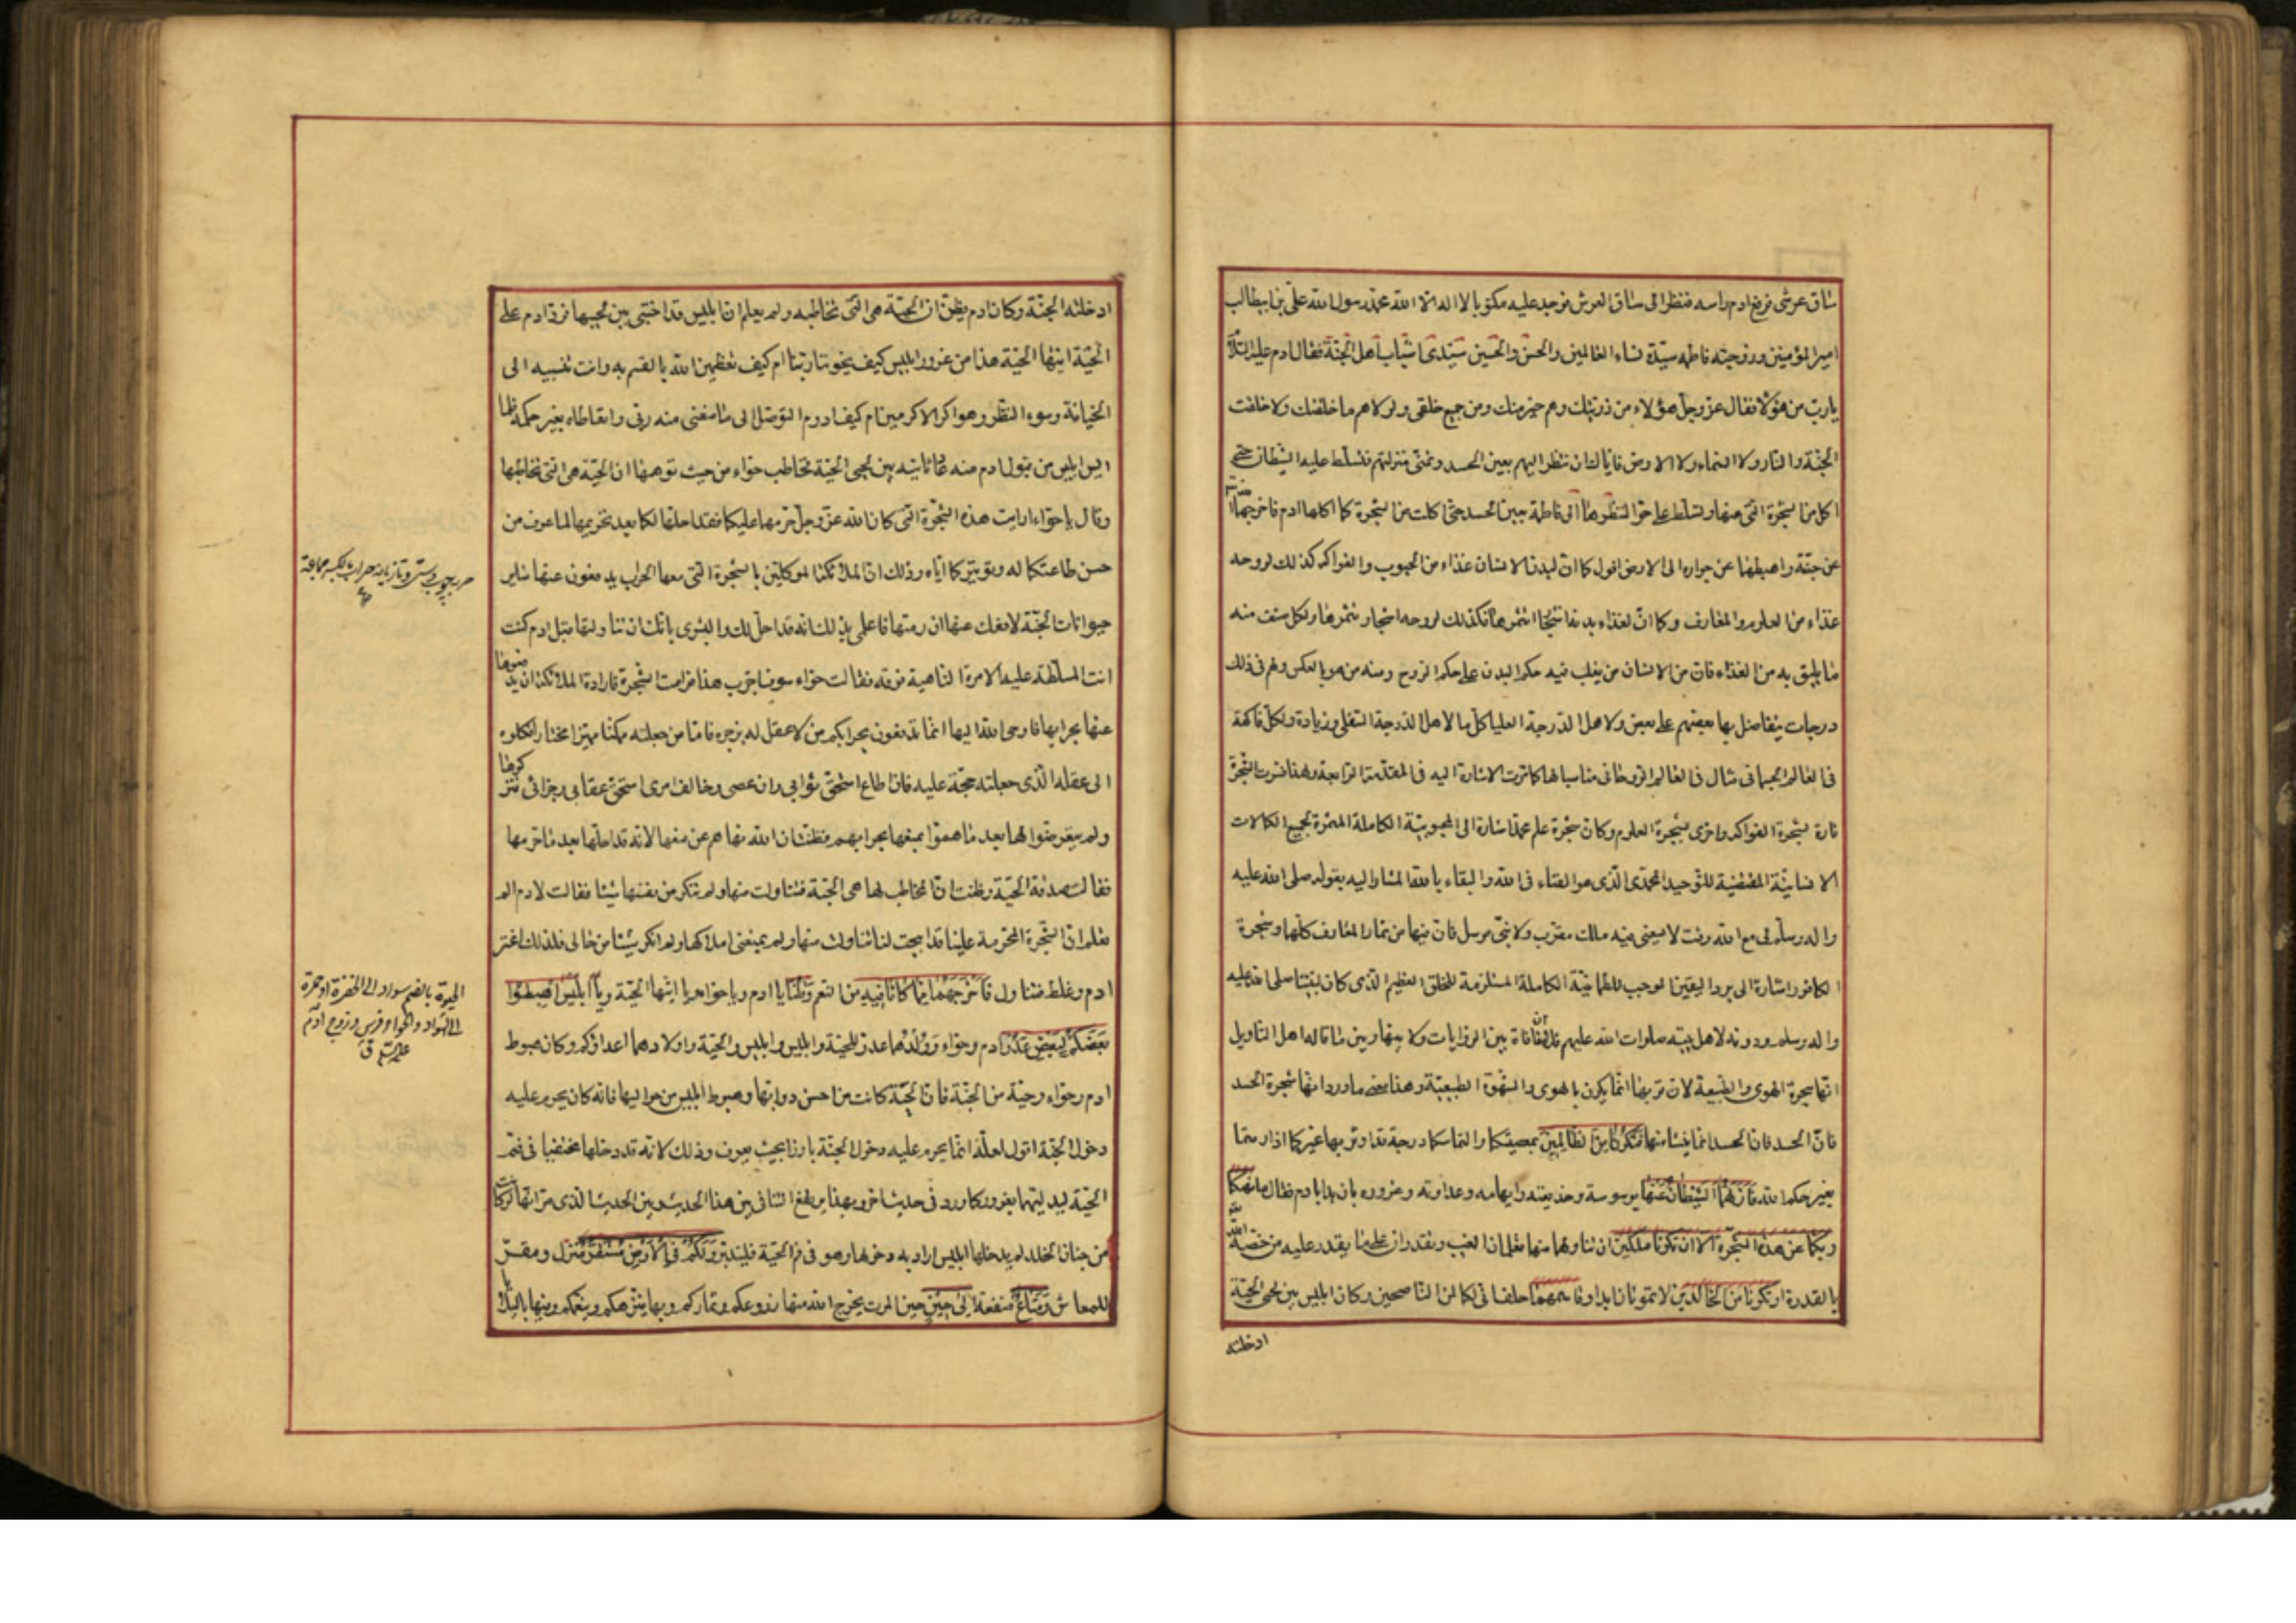 ساق عرشى فرفع ادم راسه فنظر الى ساق العرش فوجد عليه مكتوبا لا اله الا الله محمد رسول الله علىّ بن ابيطالب
امير المؤمنين وزوجته فاطمه سيّدة نساء العالمين والحسن والحسين سيّدى شباب اهل الجنّة فقال ادم عليه السّلام
يا ربّ من هؤلاء فقال عزّ وجلّ هؤلاء من ذريّتك وهم خير منك ومن جميع خلقى ولولاهم ما خلقتك ولا خلقت
الجنّة والنّار ولا السّماء ولا الارض فايّاك ان تنظر اليهم بعين الحسد وتمنّى منزلتهم فتسلّط عليه الشّيطان حتّى
اكل من الشّجرة الّتى نهى عنها وتسلّط على حوّا لنظرها الى فاطمة بعين الحسد حتّى اكلت من الشّجرة كما اكلها ادم فاخرجهما الله
عن جنّته واهبطهما عن جواره الى الارض اقول كما انّ لبدن الانسان غذاء من الحبوب والفواكه كذلك لروحه
غذاء من العلوم والمعارف وكما انّ لغذاء بدنه اشجارا تثمرها فكذلك لروحه اشجار تثمرها ولكلّ صنف منه
ما يليق به من الغذاء فانّ من الانسان من يغلب فيه حكم البدن على حكم الرّوح ومنه من هو بالعكس ولهم فى ذلك
درجات يتفاضل بها بعضهم على بعض ولاهل الدّرجة العليا كلّ ما لاهل الدّرجة السّفلى وزيادة ولكلّ فاكهة
فى العالم الجسمانى مثال فى العالم الرّوحانى مناسب لها كما مرّت الاشارة اليه فى المقدّمة الرّابعة ولهذا فسّرت الشّجرة
تارة بشجرة الفواكه واخرى بشجرة العلوم وكان شجرة علم محمّد اشارة الى المحبوبيّة الكاملة المثمرة لجميع الكمالات
الانسانيّة المقتضية للتّوحيد المحمّدى الّذى هو الفناء فى الله والبقاء بالله المشار اليه بقوله صلى الله عليه
واله وسلّم لى مع الله وقت لا يسعنى فيه ملك مقرّب ولا نبىّ مرسل فانّ فيها من ثمار المعارف كلّها وشجرة
الكافور اشارة الى برد اليقين الموجب للطّمانينة الكاملة المستلزمة للخلق العظيم الّذى كان لنبيّنا صلى الله عليه
واله وسلم ودونه لاهل بيته صلوات الله عليهم فلا منافاة بين الرّوايات ولا بينها وبين ما قاله اهل التاويل
انّها شجرة الهوى والطّبيعة لانّ قربها انّما يكون بالهوى والشّهوة الطبيعيّة وهذا معنى ما ورد انّها شجرة الحسد
فانّ الحسد انّما ينشأ منها فتكونا من الظّالمين بمعصيتكما والتماسكما درجة قد اوثر بها غيركما اذا رمتما
بغير حكم الله فازلّهما الشّيطان عنها بوسوسته وخديعته وايهامه وعداوته وغروره بان بدا بادم فقال ما نهيكما
ربّكما عن هذه الشّجرة الّا ان تكونا ملكين ان تناولتما منها تعلمان الغيب وتقدران على ما يقدر عليه من خصّه الله
بالقدرة او تكونا من الخالدين لا تموتان ابدا وقاسمهما حلف انّى لكما لمن النّاصحين وكان ابليس بين لحيى الحيّة
ادخلته
ادخلته الجنّة وكان ادم يظنّ انّ الحيّة هى الّتى تخاطبه ولم يعلم انّ ابليس قد اختبى بين لحييها فردّ ادم على
الحيّة ايّتها الحيّة هذا من غرور ابليس كيف يخوننا ربّنا ام كيف تعظمين الله بالقسم به وانت تنسبيه الى
الخيانة وسوء النّظر وهو اكرم الاكرمين ام كيف اروم التوصّل الى ما منعنى منه ربّى واتعاطاه بغير حكمه فلمّا
ايس ابليس من قبول ادم منه عاد ثانية بين لحيى الحيّة فخاطب حوّاء من حيث توهمها انّ الحيّة هى الّتى تخاطبها
وقال يا حوّاء ارايت هذه الشّجرة الّتى كان الله عزّ وجلّ حرّمها عليكما فقد احلّها لكما بعد تحريمها لما عرف من
حسن طاعتكما له وتوقيركما ايّاه وذلك انّ الملائكة الموكّلين بالشّجرة الّتى معها الحراب يدفعون عنها ساير
حيوانات الجنّة لا تدفعك عنها ان رمتها فاعلمى بذلك انّه قد احلّ لك والبشرى بانّك ان تناولتها قبل ادم كنت
انت المسلّطة عليه الامرة النّاهية فوقه فقالت حوّاء سوف اجرّب هذا فرامت الشّجرة فارادة الملائكة ان يدفعوها
عنها بحرابها فاوحى الله اليها انّما تدفعون بحرابكم من لا عقل له يزجره فامّا من جعلته ممكّنا مميّزا مختارا فكلوه
الى عقله الّذى جعلته حجّة عليه فان اطاع استحقّ ثوابى وان عصى وخالف امرى استحقّ عقابى وجزائى فتركوها
ولم يتعرّضوا لها بعد ما همّوا بمنعها بحرابهم فظنّت انّ الله نهاهم عن منعها لانّه قد احلّها بعد ما حرّمها
فقالت صدقت الحيّة وظنّت انّ المخاطب لها هى الحيّة فتناولت منها ولم تنكر من نفسها شيئا فقالت لادم الم
تعلم انّ الشّجرة المحرّمة علينا قد ابيحت لنا تناولت منها ولم يمنعنى املاكها ولم انكر شيئا من حالى فلذلك اغترّ
ادم وغلط فتناول فاخرجهما ممّا كانا فيه من النّعم وقلنا يا ادم ويا حوّا ويا ايّتها الحيّة ويا ابليس اهبطوا
بعضكم لبعض عدوّ ادم وحوّاء وولدهما عدوّ للحيّة وابليس وابليس والحيّة واولادهما اعداؤكم وكان هبوط
ادم وحوّاء وحيّة من الجنّة فانّ الحيّة كانت من احسن دوابّها وهبوط ابليس من حواليها فانّه كان يحرم عليه
دخول الجنّة اقول لعلّه انّما يحرم عليه دخول الجنّة بارزا بحيث يعرف وذلك لانّه قد دخلها مختفيا فى فم
الحيّة ليدلّيهما بغرور كما ورد فى حديث اخر وبهذا يرتفع التنافى بين هذا الحديث وبين الحديث الّذى مرّ انّها لو كانت
من جنان الخلد لم يدخلها ابليس اراد به دخولها وهو فى فم الحيّة فليتدبّر ولكم فى الارض مستقرّ منزل ومقرّ
للمعاش ومتاع منفعة الى حين حين الموت يخرج الله منها زروعكم وثماركم وبها ينزّهكم وينعّمكم وفيها بالبلايا
الحوة بالضم سواد الى الخضرة او حمرة
الى السّواد والحوّاء وفرس وزوج ادم
عليه السّلم ق